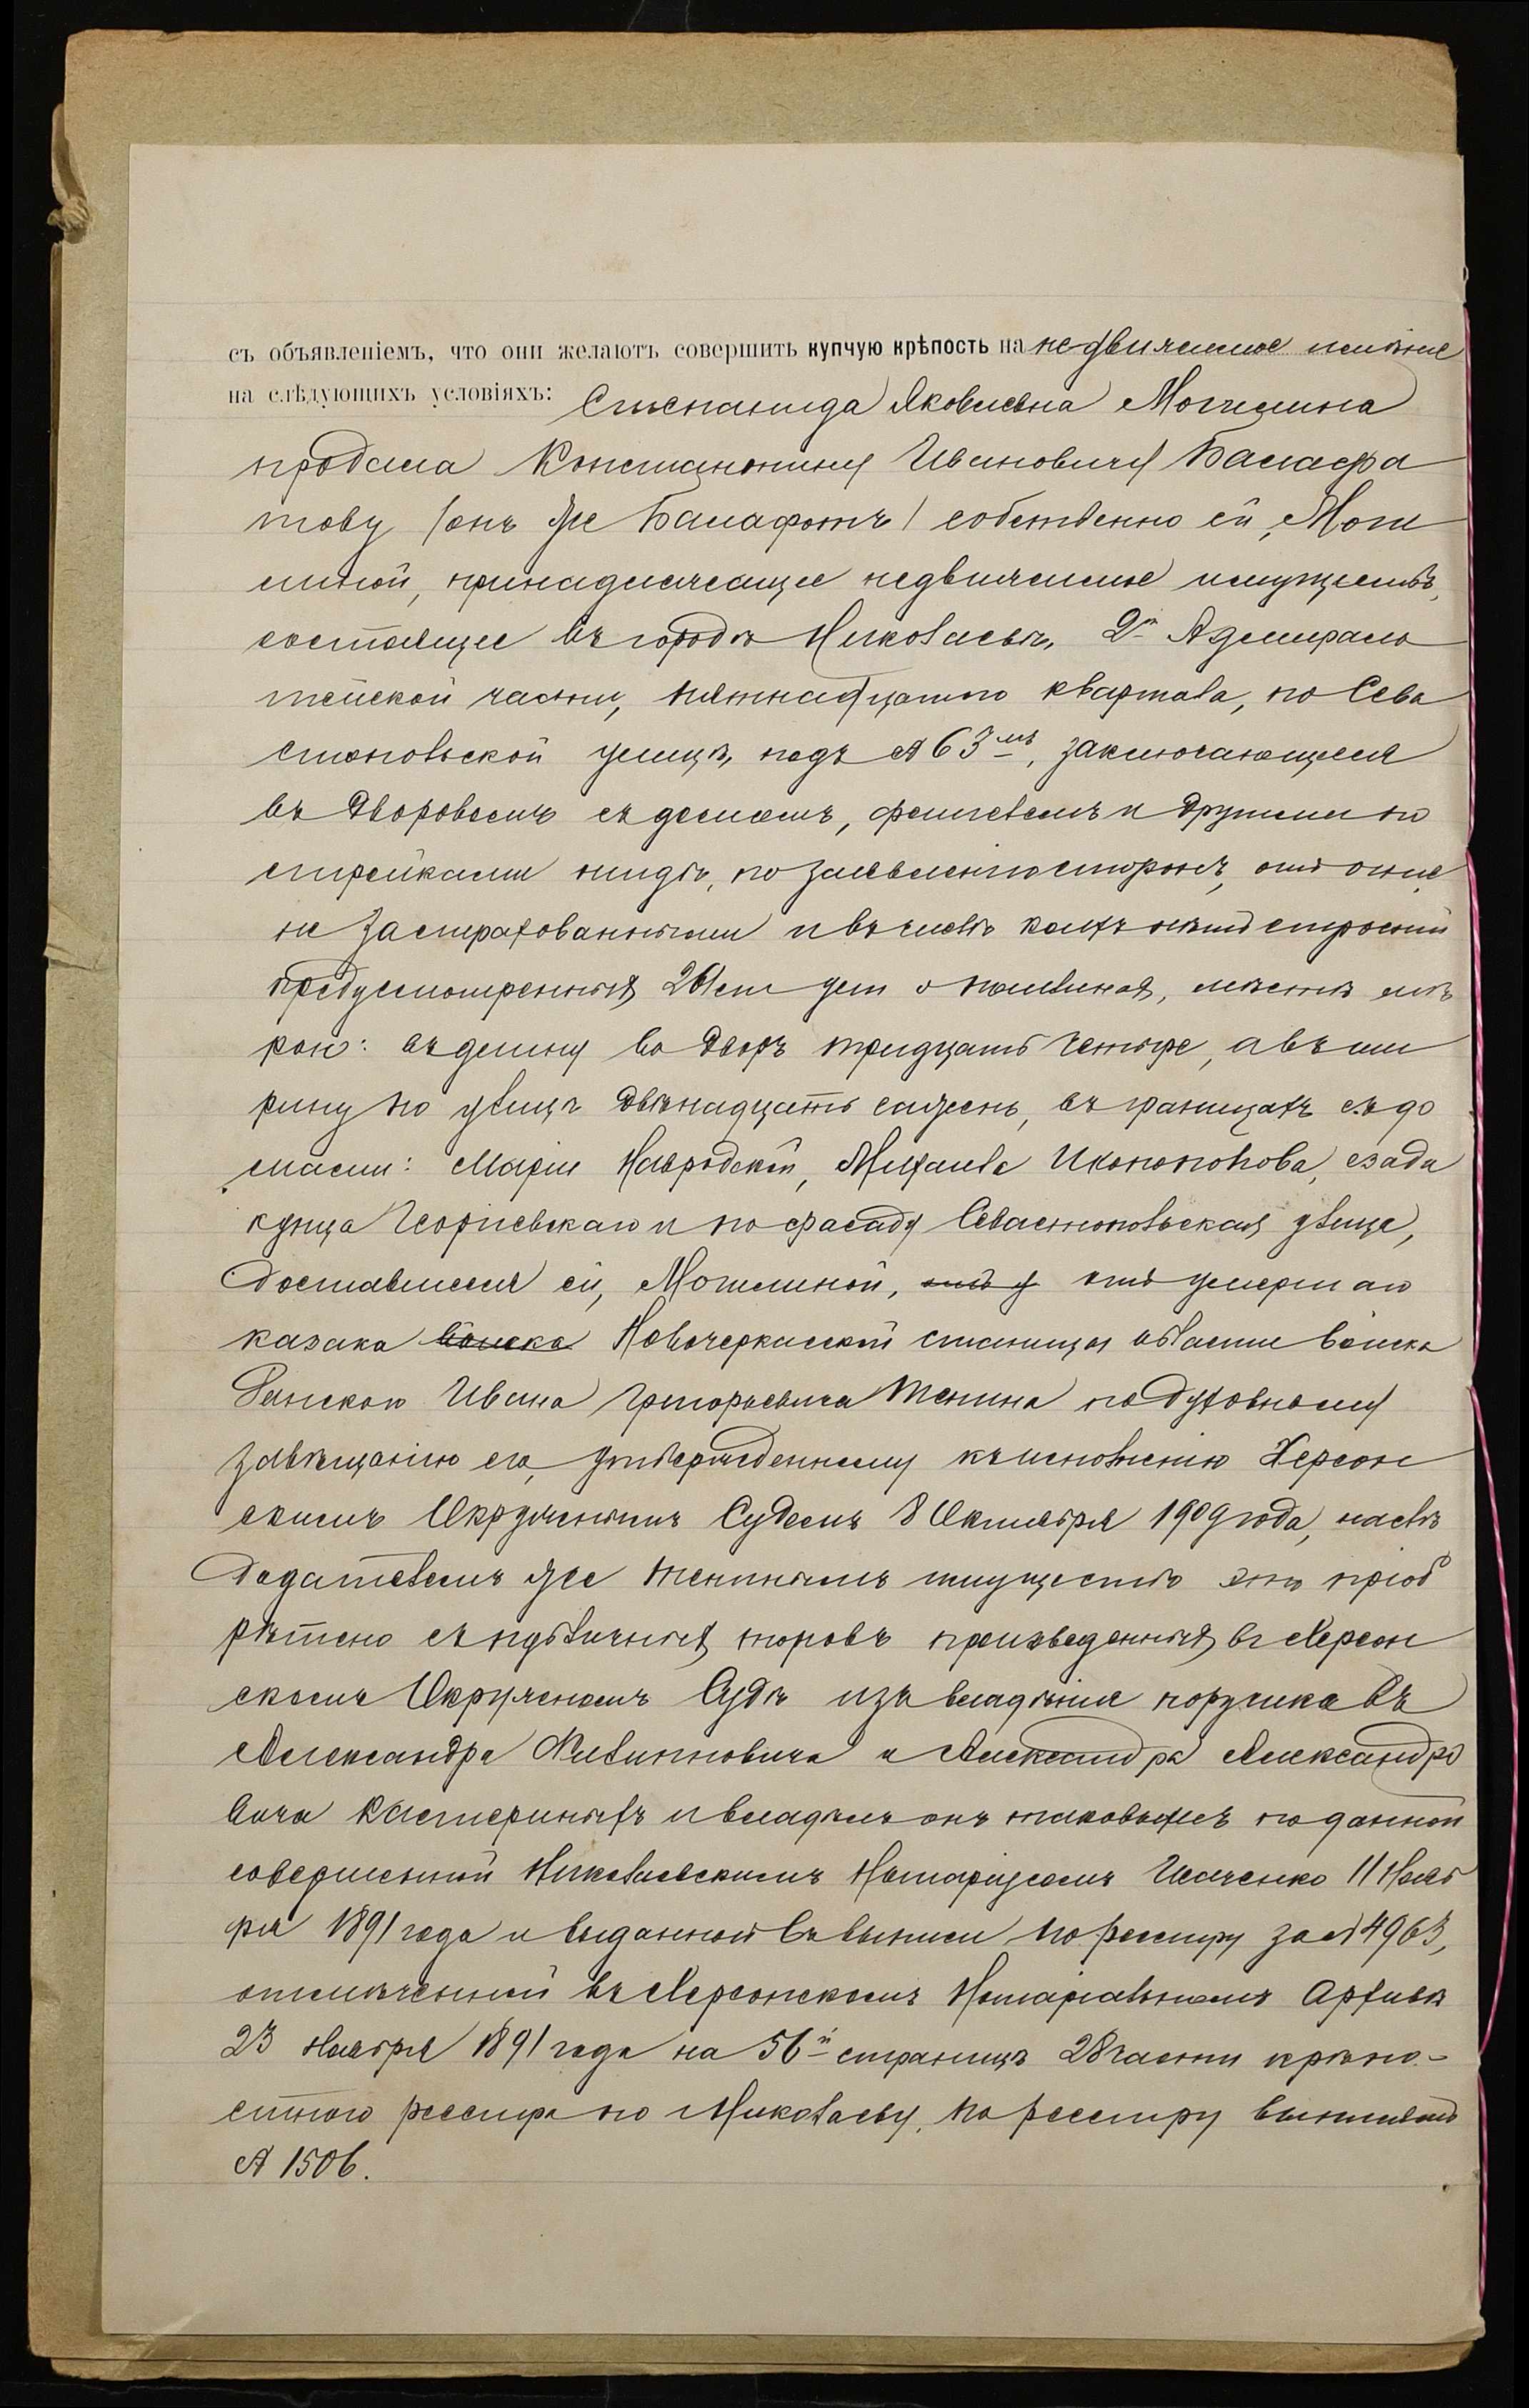 съ объявленіемъ, что они желаютъ совершить купчую крѣпость на недвижимое имѣніе
на слѣдующихъ условіяхъ: Степанида Яковлевна Могилина
продала Константину Ивановичу Балафа
тову (онъ же Балафотъ) собственно ей, Моги
линой, принадлежащее недвижимое имущество,
состоящее въ городѣ Николаевѣ, 2й Адмирал
тейской части, пятнадцатого квартала, по Сева
стопольской улицѣ, подъ № 63мъ, заключающееся
въ дворовомъ съ домомъ, флигелемъ и другими по
стройками нигдѣ, по заявленію сторонъ, отъ огня
не застрахованными и въ числѣ коихъ нѣтъ строеній
предусмотренныхъ ст уст о пошлинахъ, мѣстѣ мѣ
рою: въ длину во дворъ тридцать четыре, а въ ши
рину по улицѣ двѣнадцать сажень, въ границахъ съ до
мами: Маріи Навродской, Михаила Икономова, сзади
купца Георгіевскаго и по фасаду Севастопольская улица,
доставшееся ей, Могилиной, отъ у отъ умершаго
казака Войска Новочеркасской станицы области Войска
Донского Ивана Григорьевича Тенина по духовному
завѣщанію его, утвержденному къ исполненію Херсон
скимъ Окружнымъ Судомъ 8 Октября 1909 года, наслѣ
додателемъ же Тенинымъ имущество это пріоб
рѣтено съ публичныхъ торговъ произведенныхъ въ Херсон
скомъ Окружномъ Судѣ изъ владѣнія поручика въ
Александра Филипповича и Александра Александро
вича Кастериныхъ и владѣлъ онъ таковымъ по данной
совершенной Николаевскимъ Нотаріусомъ Исаченко 11 Нояб
ря 1891 года и выданной въ выписи по реестру за № 4963,
отмѣченной въ Херсонскомъ Нотаріальномъ Архивѣ
23 Ноября 1891 года на 56й страницѣ 28 части крѣпо-
стного реестра по Николаеву, по реестру
№ 1506.